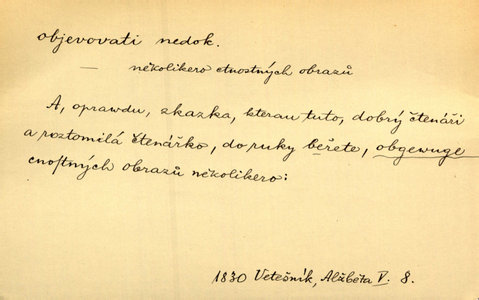 objevovati nedok.
— několikero ctnostných obrazů
A, oprawdu, zkazka, kterau tuto, dobrý čtenáři
a roztomilá čtenářko, do ruky beřete, obgewuge
cnoſtných obrazů několikero:
1830 Vetešník, Alžběta V. 8.